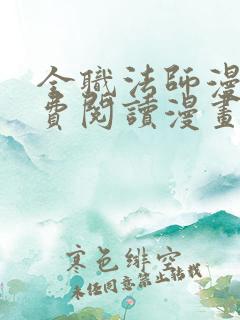 全職法師漫
費閱讀漫畫
寒色緋空
未经同意禁止转载